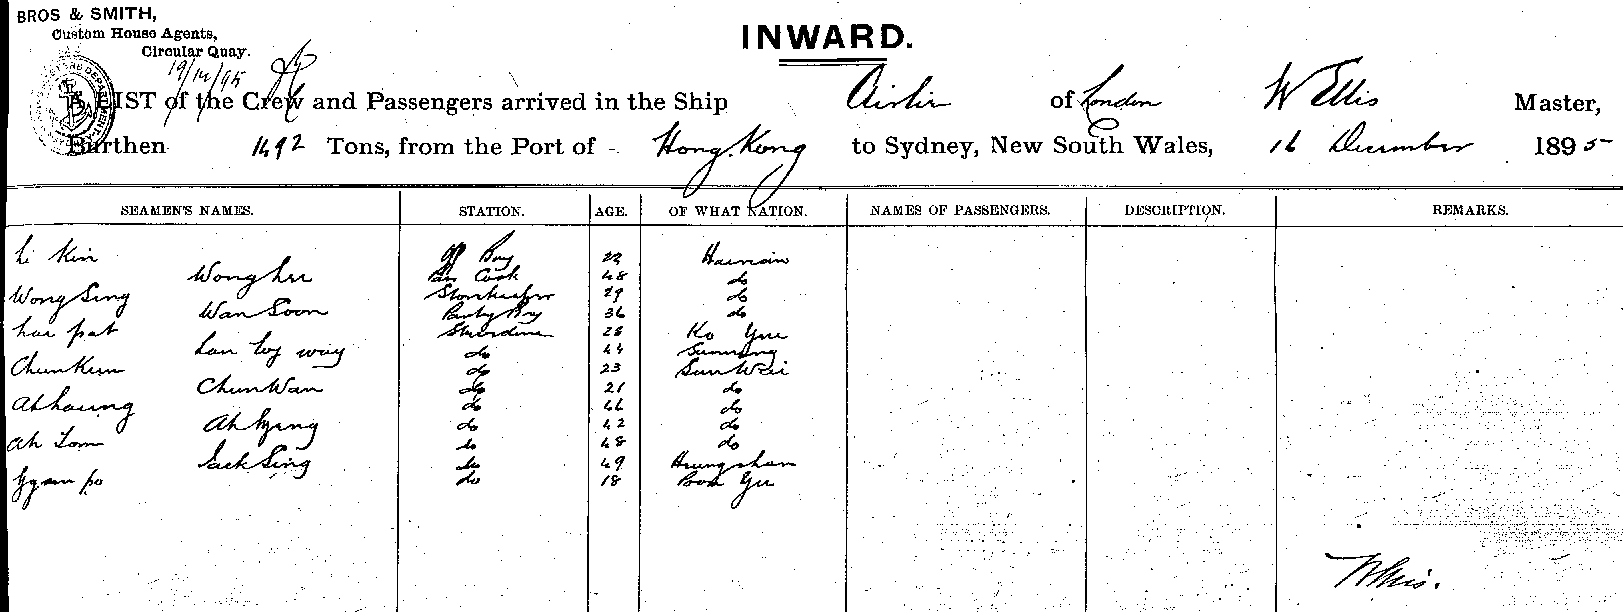 BROS & SMITH,
Custom House Agents,
Circular Quay.
19/12/95
INWARD.
A LIST of the Crew and Passengers arrived in the Ship Airlie of London W Ellis Master,
Burthen 1492 Tons, from the Port of Hong Kong to Sydney, New South Wales, 16 December 1895
SEAMEN'S NAMES. STATION. AGE. OF WHAT NATION. NAMES OF PASSENGERS. DESCRIPTION. REMARKS.
Li Kin Boy 22 Hainain
Wong Lee Cook 48 do
Wong Sing Storekeeper 29 do
Wan Soon Pantry Boy 36 do
28 Ko Yue
do 44
Chun Kum do 23 Sun Wei
Chun Wan do 21 do
do 46 do
do 42 do
Ah Tom do 48 do
Jack Sing do 49 Heungshan
do 18
W Ellis.